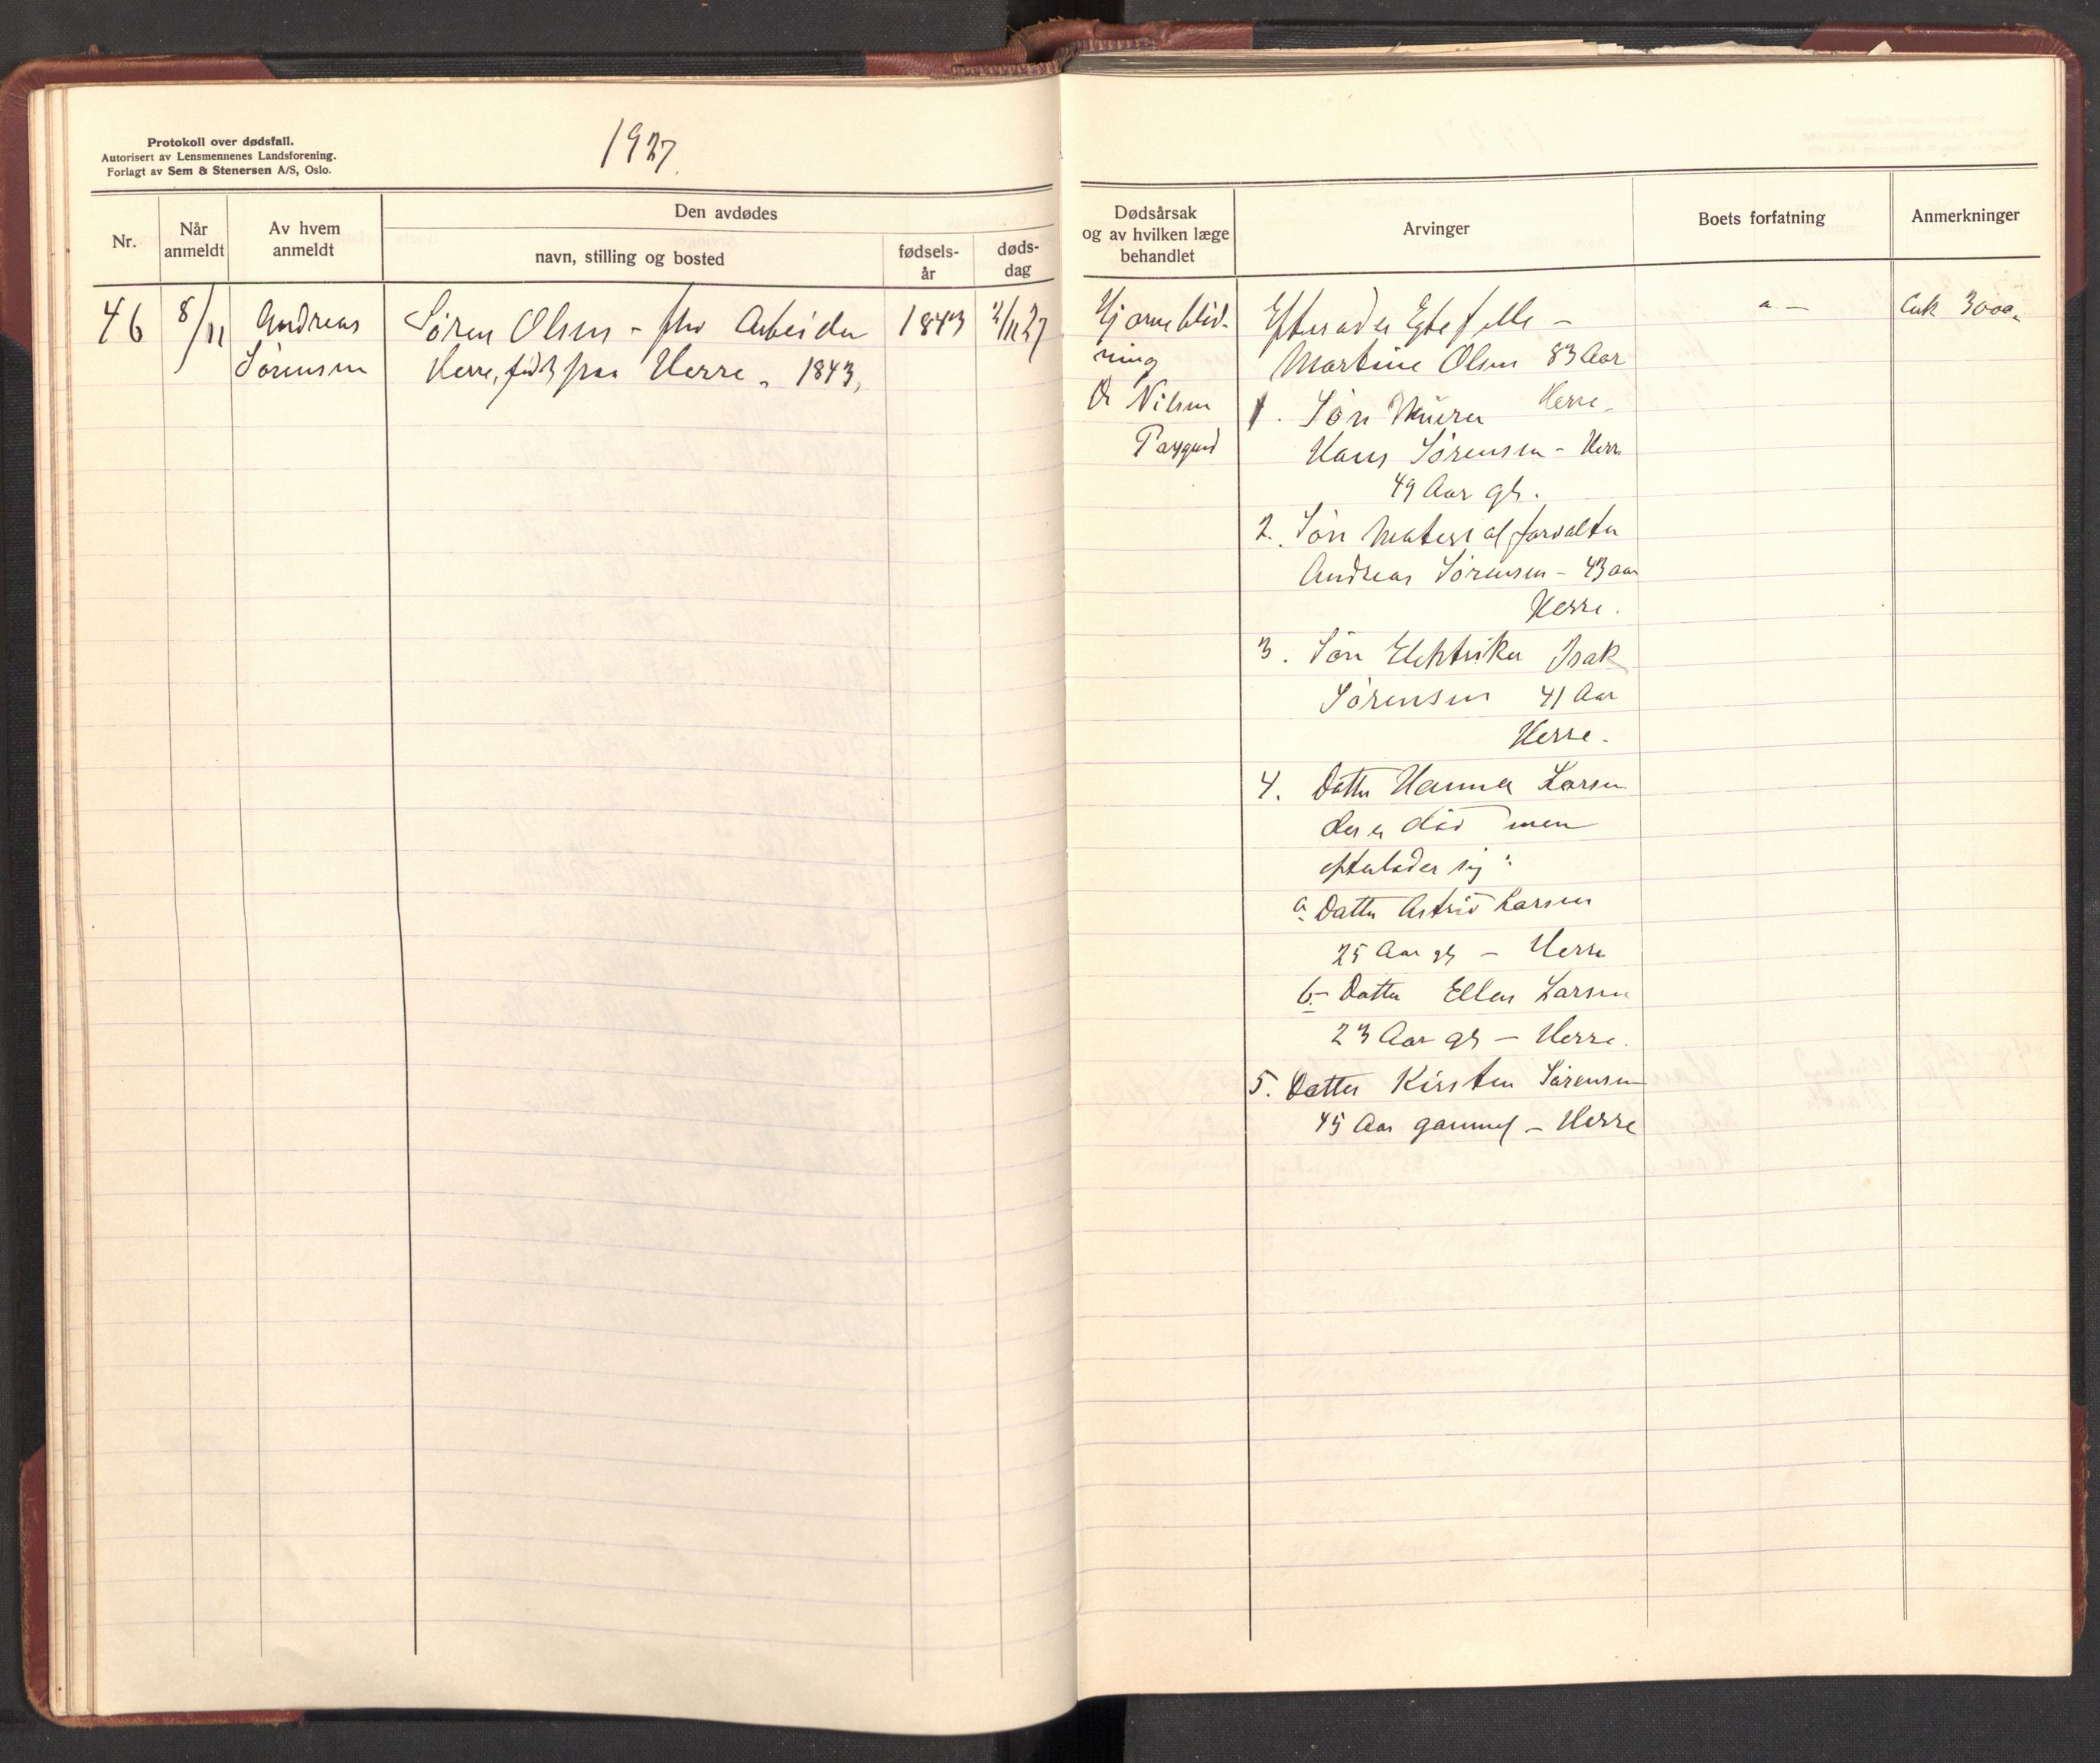 Protokoll over dødsfall.
Autorisert av Lensmennenes Landsforening.
Forlagt av Sem & Stenersen A/S, Oslo.
1927.
Nr.
Når anmeldt
Av hvem anmeldt
Den avdødes
navn, stilling og bosted
fødselsår
dødsdag
46
8/11
Andreas
Sørensen
Søren Olsen - fhv Arbeider
Herre, født paa Herre. 1843,
1843
2/11 27
Dødsårsak
og av hvilken læge
behandlet
Arvinger
Boets forfatning
Anmerkninger
Hjerneblød-
ning
Dr Nilsen
Efterlader Egtefelle -
Martine Olsen 83 Aar
Herre -
1. Søn Murer
Hans Sørensen - Herre
49 Aar gl.
2. Søn Material forvalter
Andreas Sørensen - 43 aar
Herre.
3. Søn Elektriker Isak
Sørensen 41 Aar
Herre.
4. Datter Hanna Larsen
der er död men
efterlader sig:
a Datter Astrid Larsen
25 Aar gl - Herre
b - Datter Ellen Larsen
23 Aar gl - Herre.
5. Datter Kirsten Sørensen
45 Aar gammel - Herre
a -
3000,